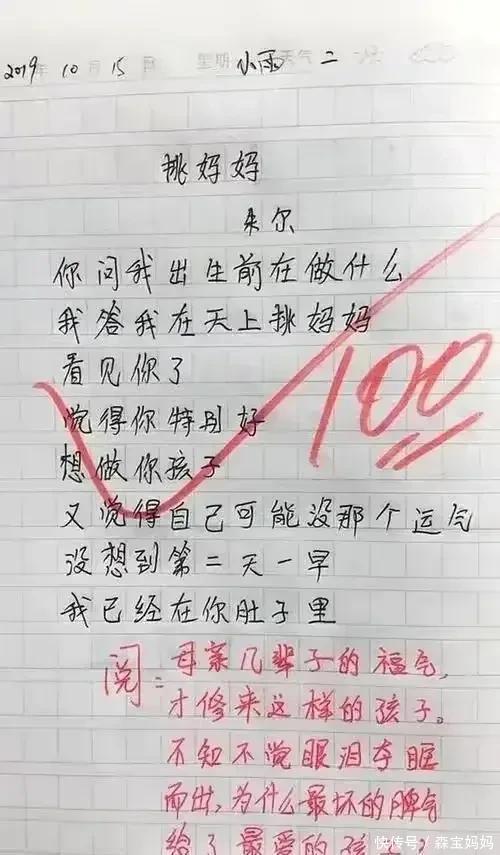 2019年 10月 15日 星期 小雨 天气 二
挑妈妈
朱尔
你问我出生前在做什么
我答我在天上挑妈妈
看见你了
觉得你特别好
想做你孩子
又觉得自己可能没那个运气
没想到第二天一早
我已经在你肚子里
100
阅：母亲几辈子的福气，
才修来这样的孩子。
不知不觉眼泪夺眶
而出，为什么最坏的脾气
给了最爱的孩子
快传号/森宝妈妈